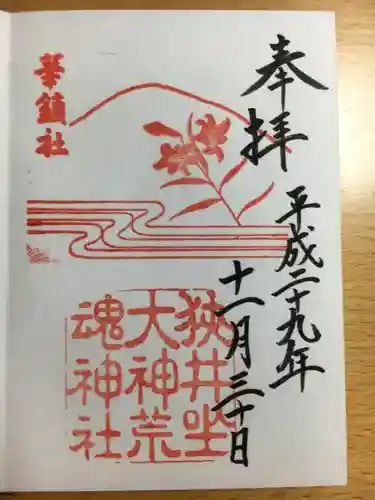 奉拝
平成二十九年
十一月三十日
華鎮社
狭井坐
大神荒
魂神社